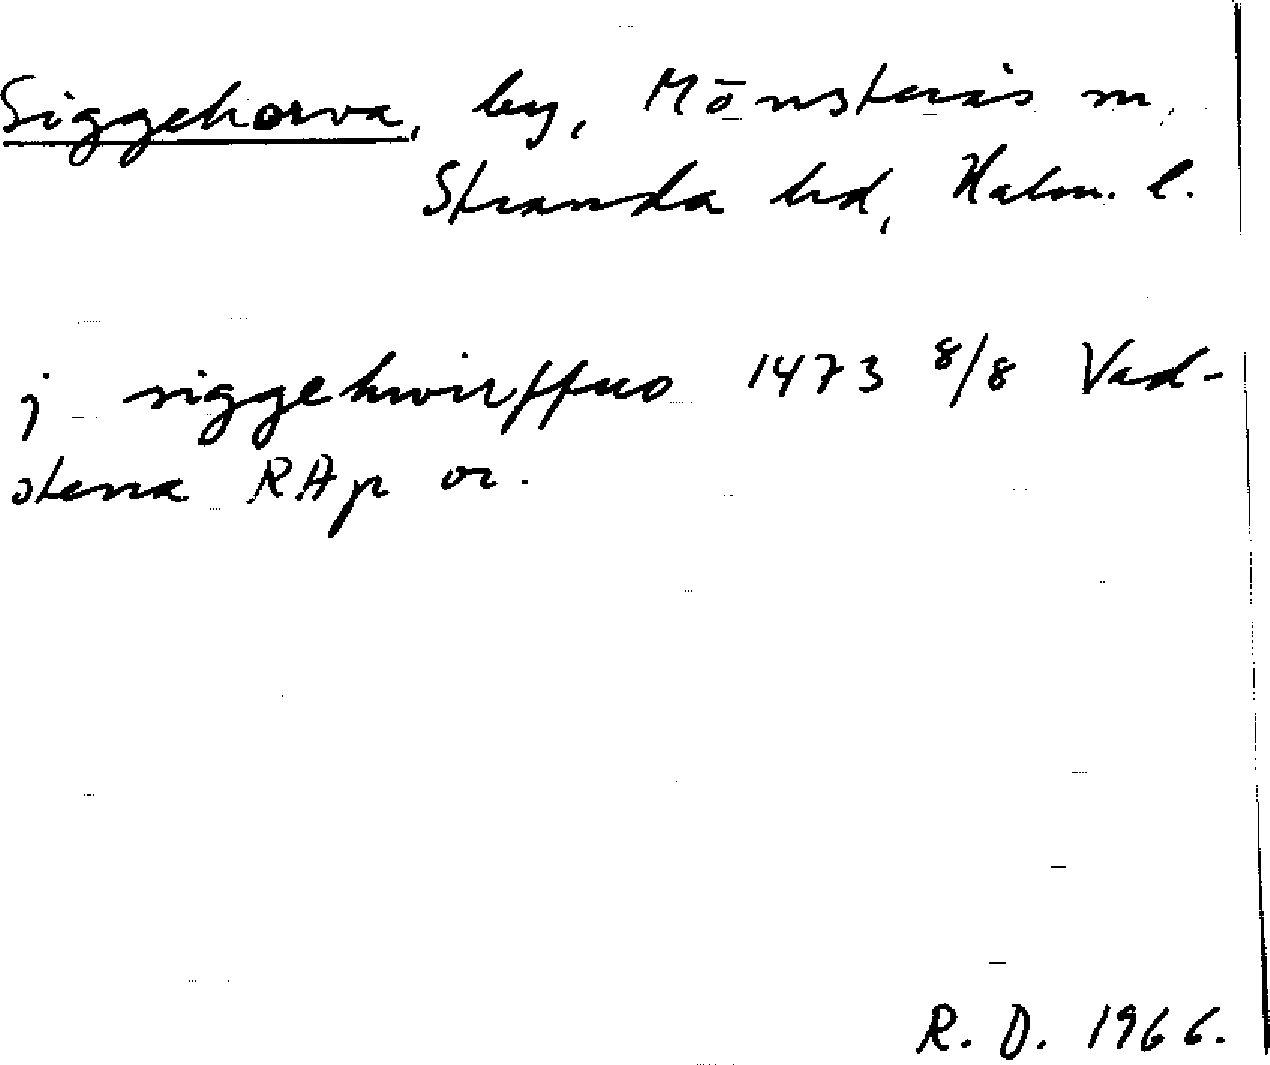 Siggehorva, by, Mönsterås sn,
Stranda hd, Kalm. l.
j siggehwirffuo 1473 8/8 Vad-
stena RAp or.
R. D. 1966.